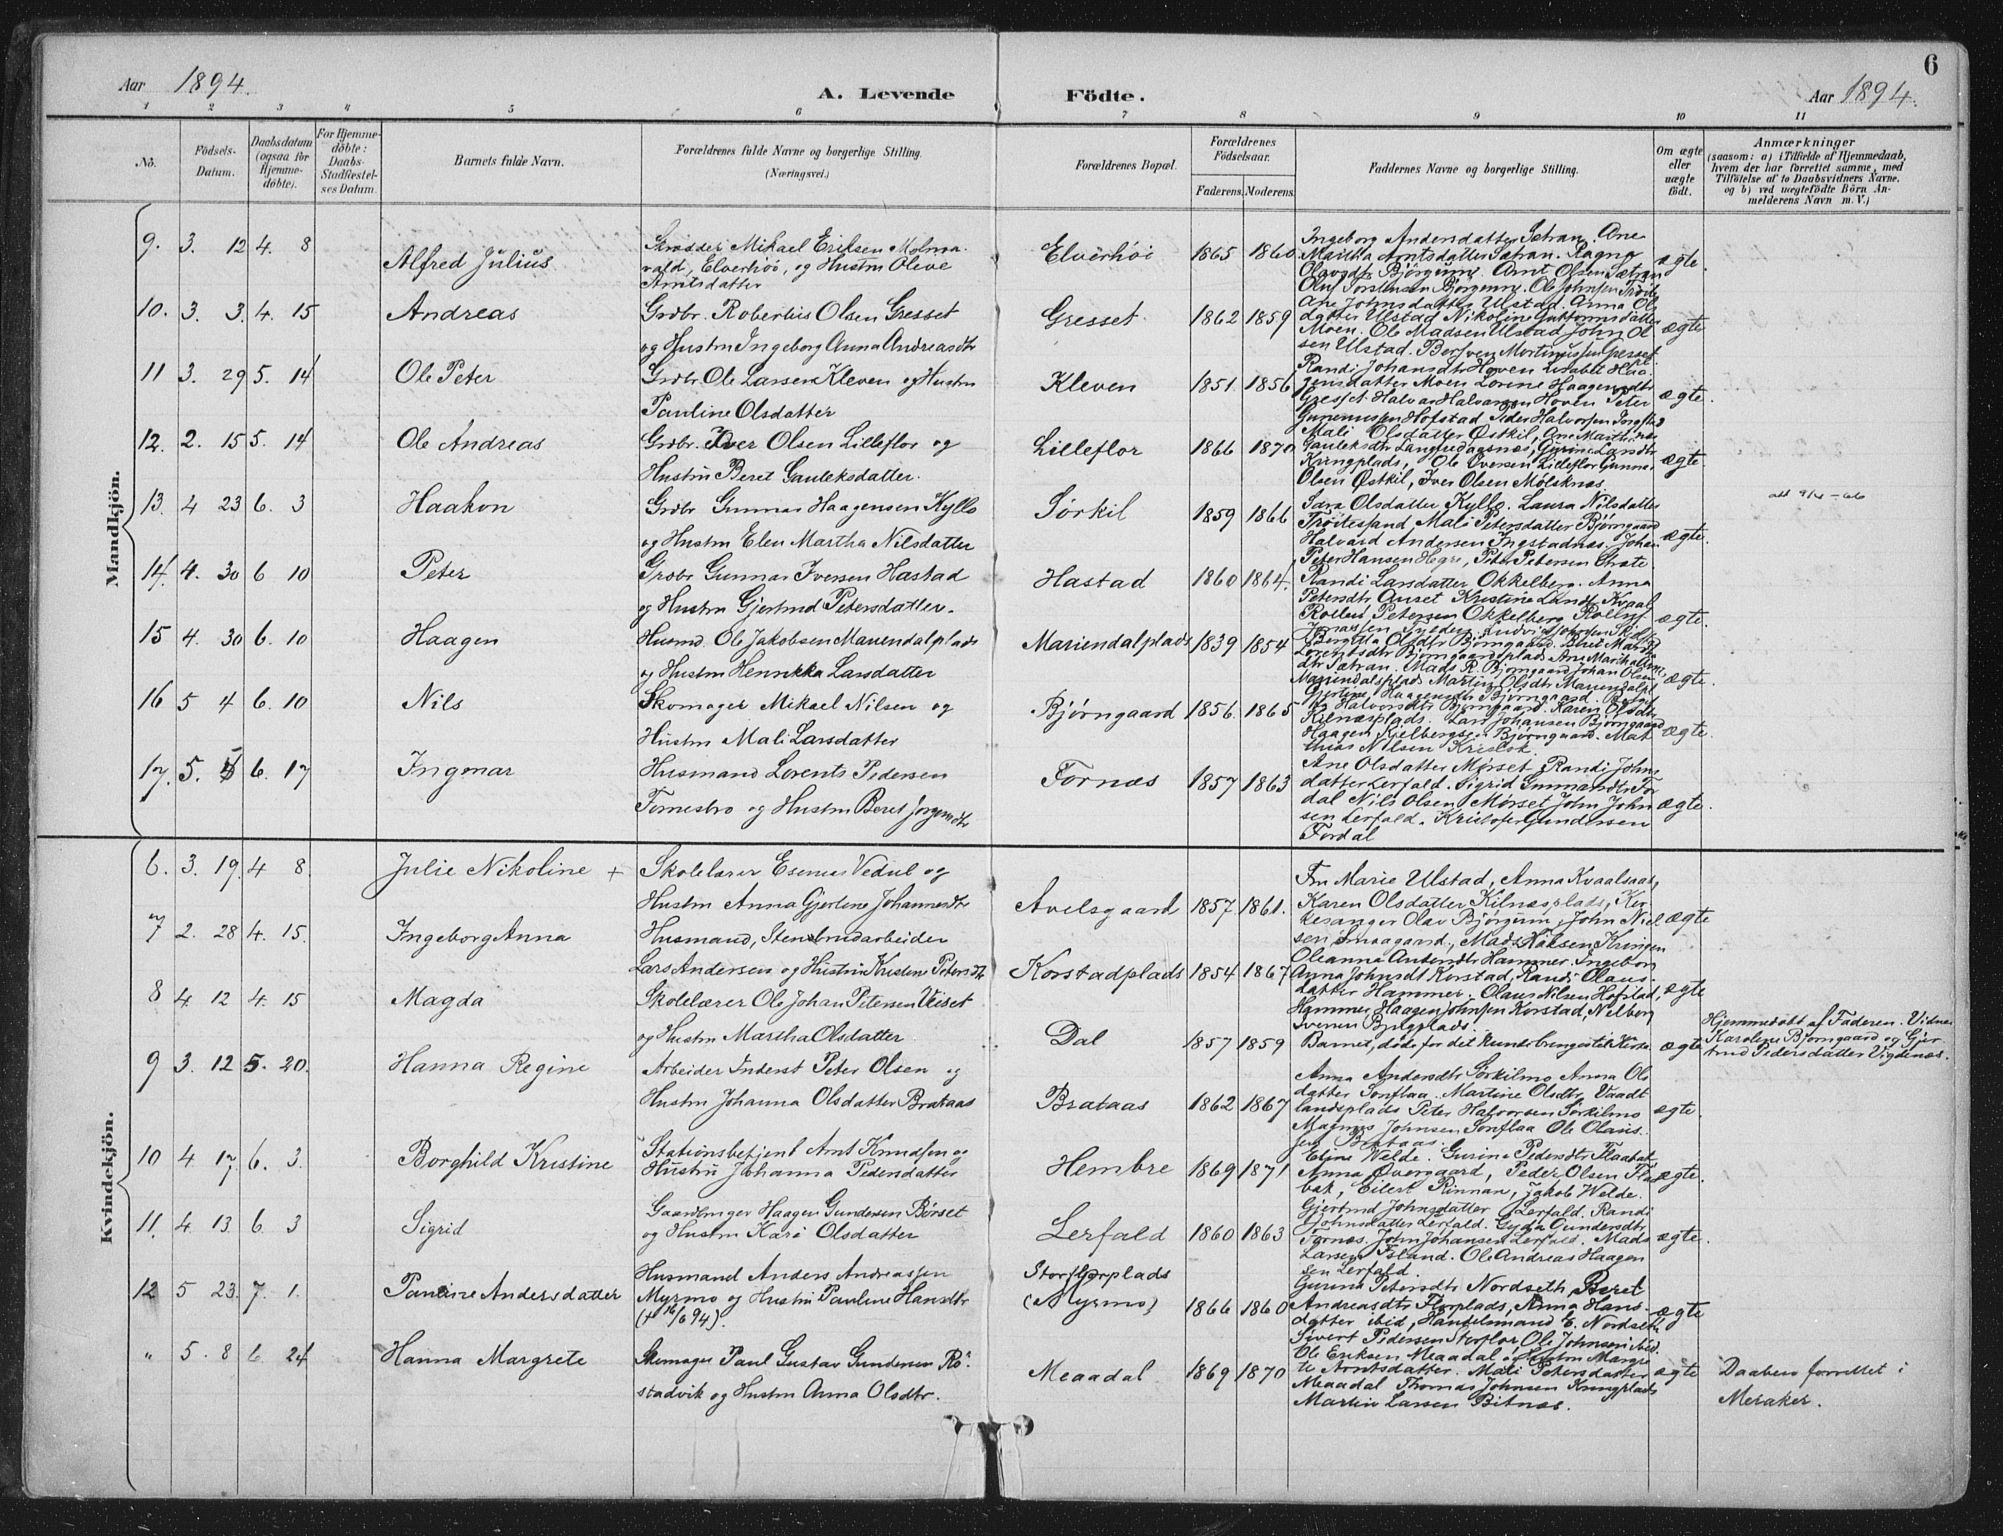 6
Aar 1894.
A. Levende Födte.
Aar 1894.
1 2 3 4 5 6 7 8 9 10 11
No.
Födsels-Datum.
Daabsdatum (ogsaa for Hjemmedöbte).
For Hjemmedöbte: Daabs-Stadfæstelses Datum.
Barnets fulde Navn.
Forældrenes fulde Navne og borgerlige Stilling.
(Næringsvei.)
Forældrenes Bopæl.
Forældrenes Födselsaar.
Faderens. Moderens.
Faddernes Navne og borgerlige Stilling.
Om ægte eller uægte födt.
Anmærkninger
(saasom: a) i Tilfælde af Hjemmedaab,
hvem der har forrettet samme, med
Tilföielse af to Daabsvidners Navne.
og b) ved uægtefödte Börn An-
melderens Navn m. V.)
Mandkjön.
9. 3. 12 4. 8 Alfred Julius
Skrædder Mikael Eriksen Molma-
vald, Elverhöi, og Hustru Oleve
Arntsdatter
Elverhöi 1865 1860
Ingeborg Andersdatter Sætran. Ane
Martha Arntsdatter Sætran. Ragno
Olavsdtr Björgum. Arnt Olsen Sætran
Oluf Torstensen Björgum. Ole Johnsen
ægte.
10. 3. 3. 4. 15 Andreas
Grdbr. Robertus Olsen Gresset
og Hustru Ingeborg Anna Andreasdtr
Gresset. 1862 1859
Ane Johnsdatter Ulstad. Anna Ol
datter Ulstad Nikoline Guttormsdatter
Moen. Ole Madsen Ulstad John Ol
sen Ulstad. Martinussen Gresset.
ægte
11 3. 29 5. 14 Ole Peter
Grdbr. Ole Larsen Kleven og Hustru
Pauline Olsdatter
Kleven 1851. 1856
Randi Johansdtr Hoven Lisabet Haa-
gensdatter Moen Lorene Haagensdtr
Gresset. Halvar Halvorsen Hoven Peter
Hofstad Peder Halvorsen
ægte.
12. 2. 15 5. 14 Ole Andreas
Grdbr. Iver Olsen Lilleflor og
Hustru Beret Gauleksdatter.
Lilleflor 1866 1870
Mali Olsdatter Østkil, Ane Martha
Gauleksdtr Gurine Larsdtr
Kringplads, Ole Iversen Lilleflor Gunnar
Olsen Østkil, Iver Olsen Mölsknæs.
ægte
13. 4 23 6. 3 Haakon
Grdbr Gunnar Haagensen Kyllo
og Hustru Elen Martha Nilsdatter
Sørkil 1859 1866
Sara Olsdatter Kyllo. Laura Nilsdatter
Mali Petersdatter Bjørngaard
Halvard Andersen Ingstadnæs. Johan
Peter Hansen Hegre, Peter Petersen
ægte.
att 9/4 - 66
14. 4. 30 6 10 Peter
Grdbr Gunnar Iversen Hastad
og Hustru Gjertrud Petersdatter.
Hastad 1860 1864.
Randi Larsdatter Okkelberg. Anna
Petersdtr Auset Kristine Kvaal
Petersen Okkelberg
ægte.
15 4. 30 6. 10 Haagen
Husmd. Ole Jakobsen Mariendalplads
og Hustru Henrikka Larsdatter
Mariendalplads 1839 1854
Bergitta Olsdtr Björngaard. Beret Martha
Lorentsdtr Björngaardsplads Ane Martha
dtr Sætran. Mads R. Björngaard Johan Olsen
Mariendalsplads Martin Olsdtr Mariendalpl
ægte.
16 5 4 6. 10 Nils
Skomager Mikael Nilsen og
Hustru Mali Larsdatter
Bjørngaard 1856. 1865
Gjertine Haagensdtr Björngaard.
Halvorsdtr Bjørngaard. Karen Olsdtr
Kilnæsplads. Lars Johansen Björngaard
Haagen Björngaard. Mat
thias Nilsen
ægte.
17. 5. 6. 17 Ingmar
Husmand Lorents Pedersen
og Hustru Beret
Fornæs 1857 1863
Ane Olsdatter Mørset Randi Johns
datter Lerfald. Sigrid Gunnarsdtr For
dal Nils Olsen Mørset John John
sen Lerfald. Kristofer Gundersen
Fordal
ægte.
Kvindekjön.
6. 3. 19. 4 8. Julie Nikoline +
Skolelærer Esenius Vedul og
Hustru Anna Gjertine Johannesdtr
Avelsgaard 1857. 1861.
Fru Marie Ulstad, Anna Kvaalsaas,
Karen Olsdatter Kilnæsplads, Kir
kesanger Olav Björgum, John Niel
sen Smaagaard, Mads Kringen
ægte
7 2. 28 4. 15. Ingeborg Anna
Husmand, Stenbrudarbeider
Lars Andersen og Hustru Kirsten Petersdtr
Korstadplads 1854 1867
Oleanna Hammer, Ingeborg
Anna Johnsdt Korstad, Randi Olaus-
datter Hammer. Olaus Nilsen Hofstad,
Hammer Haagen Johnsen Korstad, Nelberg
Iversen
ægte
8 4. 12 4. 15 Magda
Skolelærer Ole Johan Petersen
og Hustru Martha Olsdatter
Dal 1857 1859
Barnet, döde for det kunde bringes til Kirke
ægte
Hjemmedöbt af Faderen. Vidner
Karoline Björngaard og Gjer-
trud Pedersdatter Vigdenæs.
9 3. 12 5. 20. Hanna Regine
Arbeider Inderst Peter Olsen og
Hustru Johanna Olsdatter Brataas
Brataas 1862 1867
Anna Andersdtr Sørkilmo Anna Ol
datter Sonflaa. Martine Olsdtr, Vaadt
landsplads Peter Halvorsen Sørkilmo
Magnus Johnsen Sonflaa Ole Olaus-
sen Brataas.
ægte.
10 4 17 6. 3. Borghild Kristine
Stationsbetjent Arnt Knudsen og
Hustru Johanna Pedersdatter
Hembre 1869 1871
Eline Welde. Gurine Pedersdtr Flaabak
Anna Øvergaard, Peder Olsen Flaa
bak, Eilert Rinnan, Jakob Welde.
ægte.
11. 4 13 6. 3 Sigrid
Gaardbruger Haagen Gundersen Börset
og Hustru Kari Olsdatter
Lerfald 1860 1863
Gjertrud Johnsdatter Lerfald. Randi
Johnsdatter Lerfald. Gyda Gundersdtr
Fornæs. John Johansen Lerfald. Mads
Larsen. Ole Andreas Haagen
sen Lerfald.
ægte.
12 5 23. 7. 1. Pauline Andersdatter
Husmand Anders Andreassen
Myrmo og Hustru Pauline Hansdtr
(† 16/6 94).
Storflorplads
(Myrmo) 1866 1860
Gurina Petersdtr Nordseth Beret
Andreasdtr Florplads, Anna Hans-
datter ibid, Handelsmand E. Nordseth
Sivert Pedersen Storflor, Ole Johnsen ibid.
ægte
" 5. 8 6. 24 Hanna Margrete
Skomager Paul Gustav Gundersen Rö-
stadvik og Hustru Anna Olsdtr.
Meaadal 1869 1870
Ole Eriksen Meaadal og Hustru Margre
te Arntsdatter. Mali Petersdatter
Meaadal Thomas Johnsen Kringplads
Martin Larsen Bitnæs.
ægte
Daaben forrettet i
Meraker.